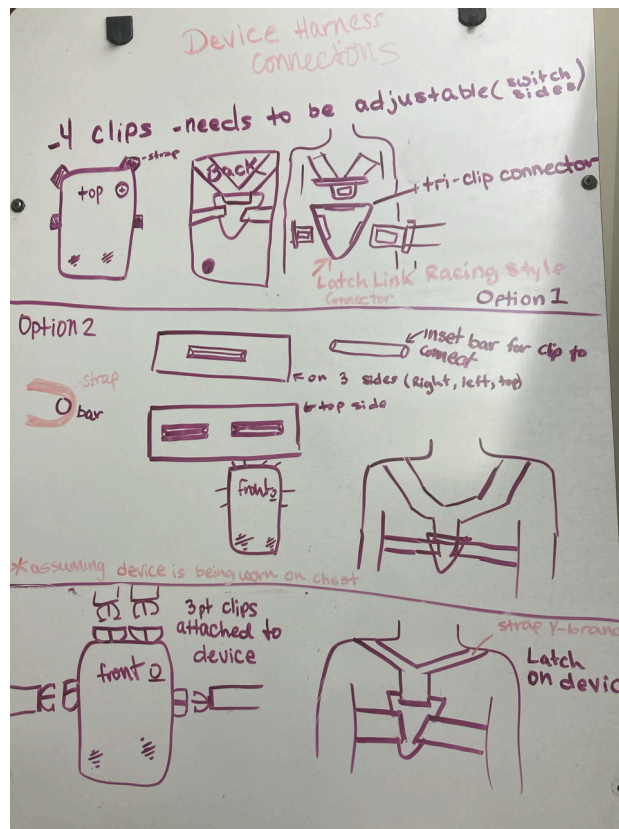 Device Harness
Connections
-4 clips -needs to be adjustable (switch sides)
-strap
top
Back
tri-clip connector
Latch Link Racing Style
Connector
Option 1
Option 2
inset bar for clip to
connect
strap
bar
on 3 sides (Right, left, top)
top side
front
*assuming device is being worn on chest
3pt clips
attached to
device
front
strap Y-bran
Latch
on devic